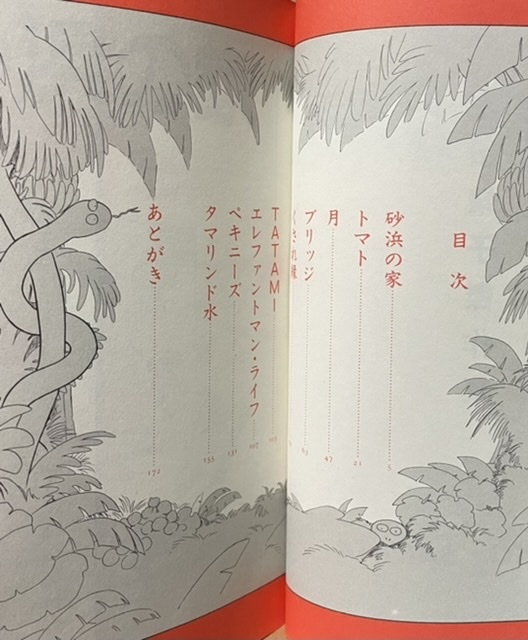 目次
砂浜の家 5
トマト 21
月 47
ブリッジ 63
くされ縁
TATAMI
エレファントマン・ライフ
ペキニーズ 131
タマリンド水 155
あとがき 172